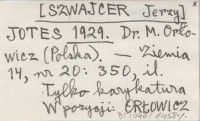 [SZWAJCER Jerzy]
JOTES 1929. Dr. M. Orło-
wicz (Polska). — Ziemia
14, nr 20: 350, il.
Tylko karykatura
W pozycji: ORŁOWICZ